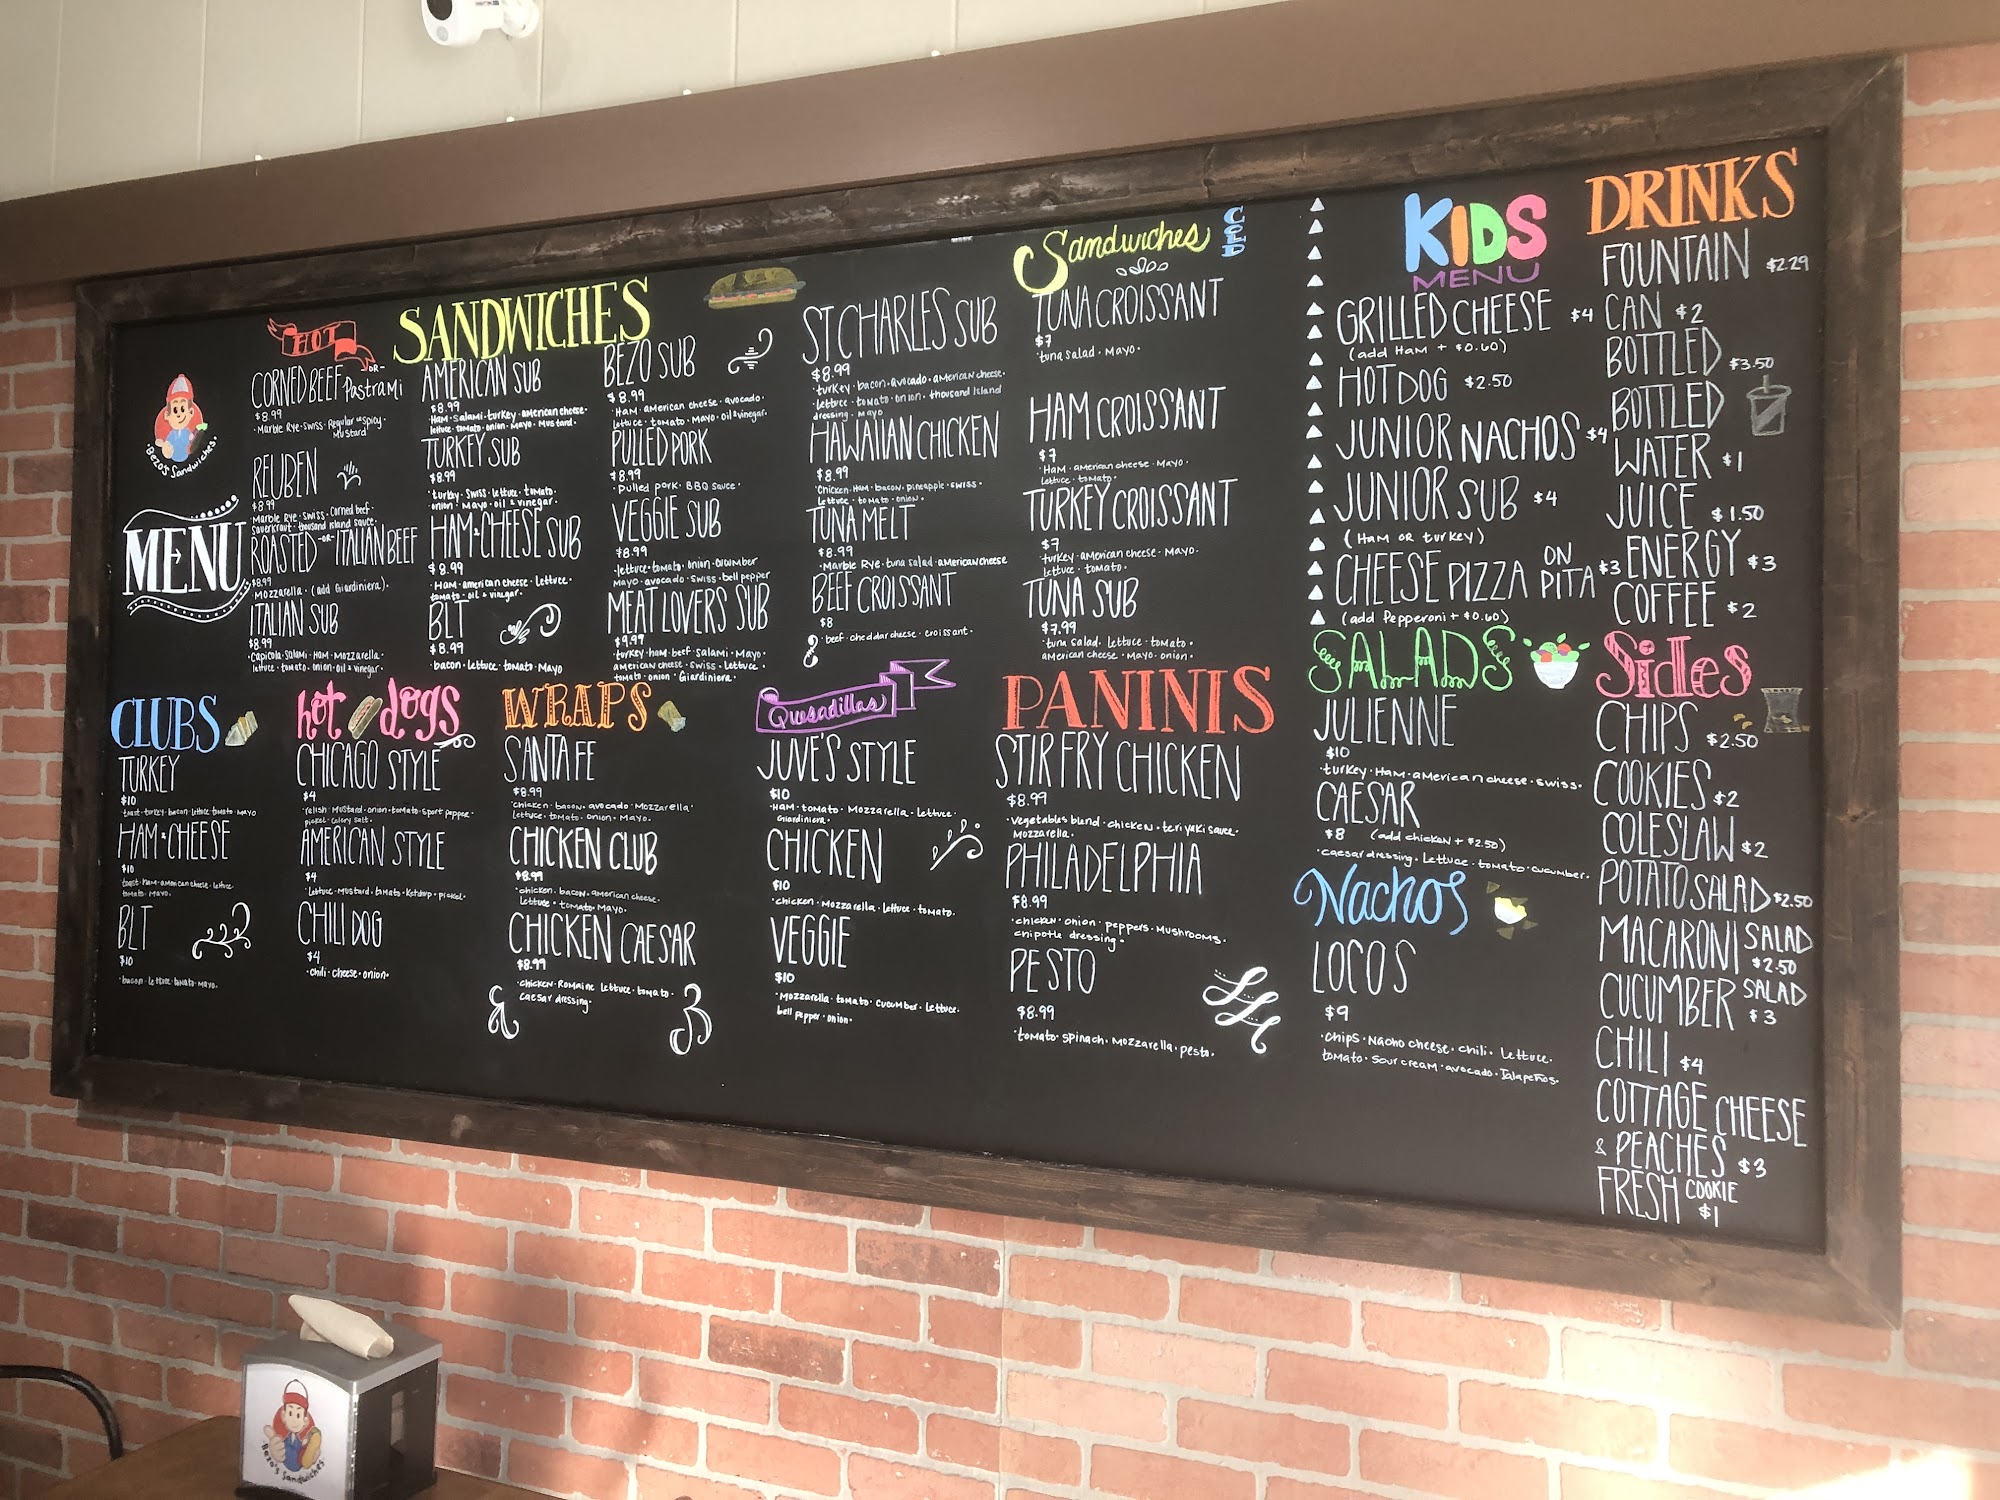 HOT
SANDWICHES
CORNED BEEF -OR- Pastrami
$8.99
·Marble Rye·Swiss·Regular or Spicy
Mustard
REUBEN
$8.99
Marble Rye·Swiss·Corned beef·
Sauerkraut·thousand island sauce·
ROASTED -OR- ITALIAN BEEF
$8.99
Mozzarella·(add Giardiniera)·
ITALIAN SUB
$8.99
·Capicola·Salami·Ham·Mozzarella·
lettuce·tomato·onion·oil & vinegar·
AMERICAN SUB
$8.99
Ham·Salami·turkey·american cheese·
lettuce·tomato·onion·Mayo·Mustard·
TURKEY SUB
$8.99
·turkey·Swiss·lettuce·tomato·
onion·Mayo·oil & vinegar·
HAM & CHEESE SUB
$8.99
·Ham·american cheese·Lettuce·
tomato·oil & vinegar·
BLT
$8.99
·bacon·Lettuce·tomato·Mayo
BEZO SUB
$8.99
·Ham·American cheese·avocado·
lettuce·tomato·Mayo·oil & vinegar·
PULLED PORK
$8.99
·Pulled pork·BBQ sauce·
VEGGIE SUB
$8.99
·lettuce·tomato·onion·cucumber
Mayo·avocado·Swiss·bell pepper
MEAT LOVERS SUB
$9.99
·turkey·ham·beef·Salami·Mayo·
american cheese·Swiss·Lettuce·
tomato·onion·Giardiniera·
ST CHARLES SUB
$8.99
·turkey·bacon·avocado·american cheese·
·lettuce·tomato·onion·thousand Island
dressing·Mayo
HAWAIIAN CHICKEN
$8.99
·Chicken·Ham·bacon·pineapple·swiss·
Lettuce·tomato·onion·
TUNA MELT
$8.99
·Marble Rye·tuna salad·american cheese
BEEF CROISSANT
$8
·beef·cheddar cheese·croissant·
Sandwiches
COLD
TUNA CROISSANT
$7
·tuna salad·Mayo·
HAM CROISSANT
$7
·Ham·american cheese·Mayo·
Lettuce·tomato·
TURKEY CROISSANT
$7
·turkey·american cheese·Mayo·
Lettuce·tomato·
TUNA SUB
$7.99
·tuna salad·Lettuce·tomato·
american cheese·Mayo·onion·
KIDS
MENU
GRILLED CHEESE $4
(add Ham + $0.60)
HOT DOG $2.50
JUNIOR NACHOS $4
JUNIOR SUB $4
(Ham or turkey)
CHEESE PIZZA ON PITA $3
(add Pepperoni + $0.60)
DRINKS
FOUNTAIN $2.29
CAN $2
BOTTLED $3.50
BOTTLED
WATER $1
JUICE $1.50
ENERGY $3
COFFEE $2
·Bezo's Sandwiches·
MENU
CLUBS
TURKEY
$10
·toast·turkey·bacon·lettuce·tomato·Mayo
HAM & CHEESE
$10
toast·ham·american cheese·lettuce·
tomato·Mayo·
BLT
$10
·bacon·lettuce·tomato·Mayo·
hot dogs
CHICAGO STYLE
$4
·relish·Mustard·onion·tomato·sport pepper·
pickel·celery salt·
AMERICAN STYLE
$4
·lettuce·Mustard·tomato·Ketchup·pickel·
CHILI DOG
$4
·chili·cheese·onion·
WRAPS
SANTA FE
$8.99
·chicken·bacon·avocado·Mozzarella·
Lettuce·tomato·onion·Mayo·
CHICKEN CLUB
$8.99
·chicken·bacon·american cheese·
Lettuce·tomato·Mayo·
CHICKEN CAESAR
$8.99
·chicken·Romaine lettuce·tomato·
caesar dressing·
Quesadillas
JUVE'S STYLE
$10
·Ham·tomato·Mozzarella·Lettuce·
Giardiniera·
CHICKEN
$10
·chicken·Mozzarella·lettuce·tomato·
VEGGIE
$10
·Mozzarella·tomato·cucumber·Lettuce·
bell pepper·onion·
PANINIS
STIR FRY CHICKEN
$8.99
·vegetables blend·chicken·teriyaki sauce·
Mozzarella·
PHILADELPHIA
$8.99
·chicken·onion·peppers·Mushrooms·
chipotle dressing·
PESTO
$8.99
·tomato·spinach·Mozzarella·pesto·
SALADS
JULIENNE
$10
·turkey·Ham·american cheese·swiss·
CAESAR
$8 (add chicken + $2.50)
·caesar dressing·Lettuce·tomato·cucumber·
Nachos
LOCOS
$9
·chips·Nacho cheese·chili·Lettuce·
tomato·Sour cream·avocado·Jalapeños·
Sides
CHIPS $2.50
COOKIES $2
COLESLAW $2
POTATO SALAD $2.50
MACARONI SALAD
$2.50
CUCUMBER SALAD
$3
CHILI $4
COTTAGE CHEESE
& PEACHES $3
FRESH COOKIE
$1
Bezo's Sandwiches